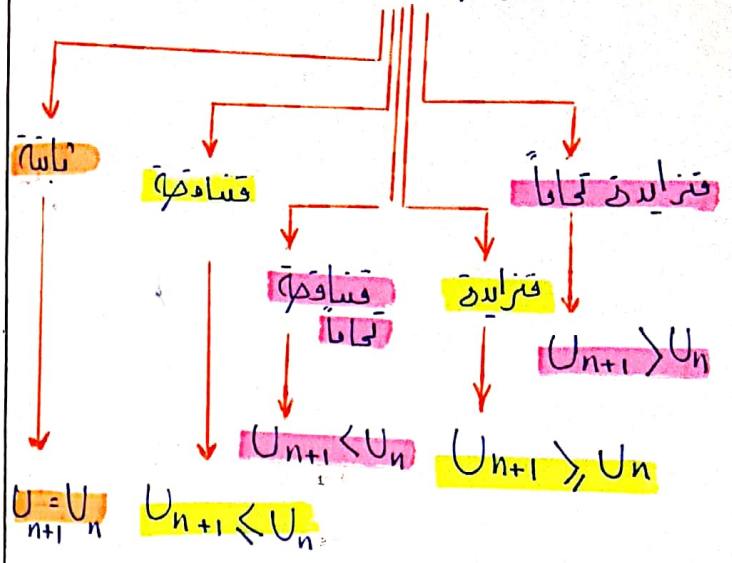 متزايدة تماماً
U_{n+1} > U_n
متزايدة
U_{n+1} ≥ U_n
متناقصة
تماماً
U_{n+1} < U_n
متناقصة
U_{n+1} ≤ U_n
ثابتة
U_{n+1} = U_n